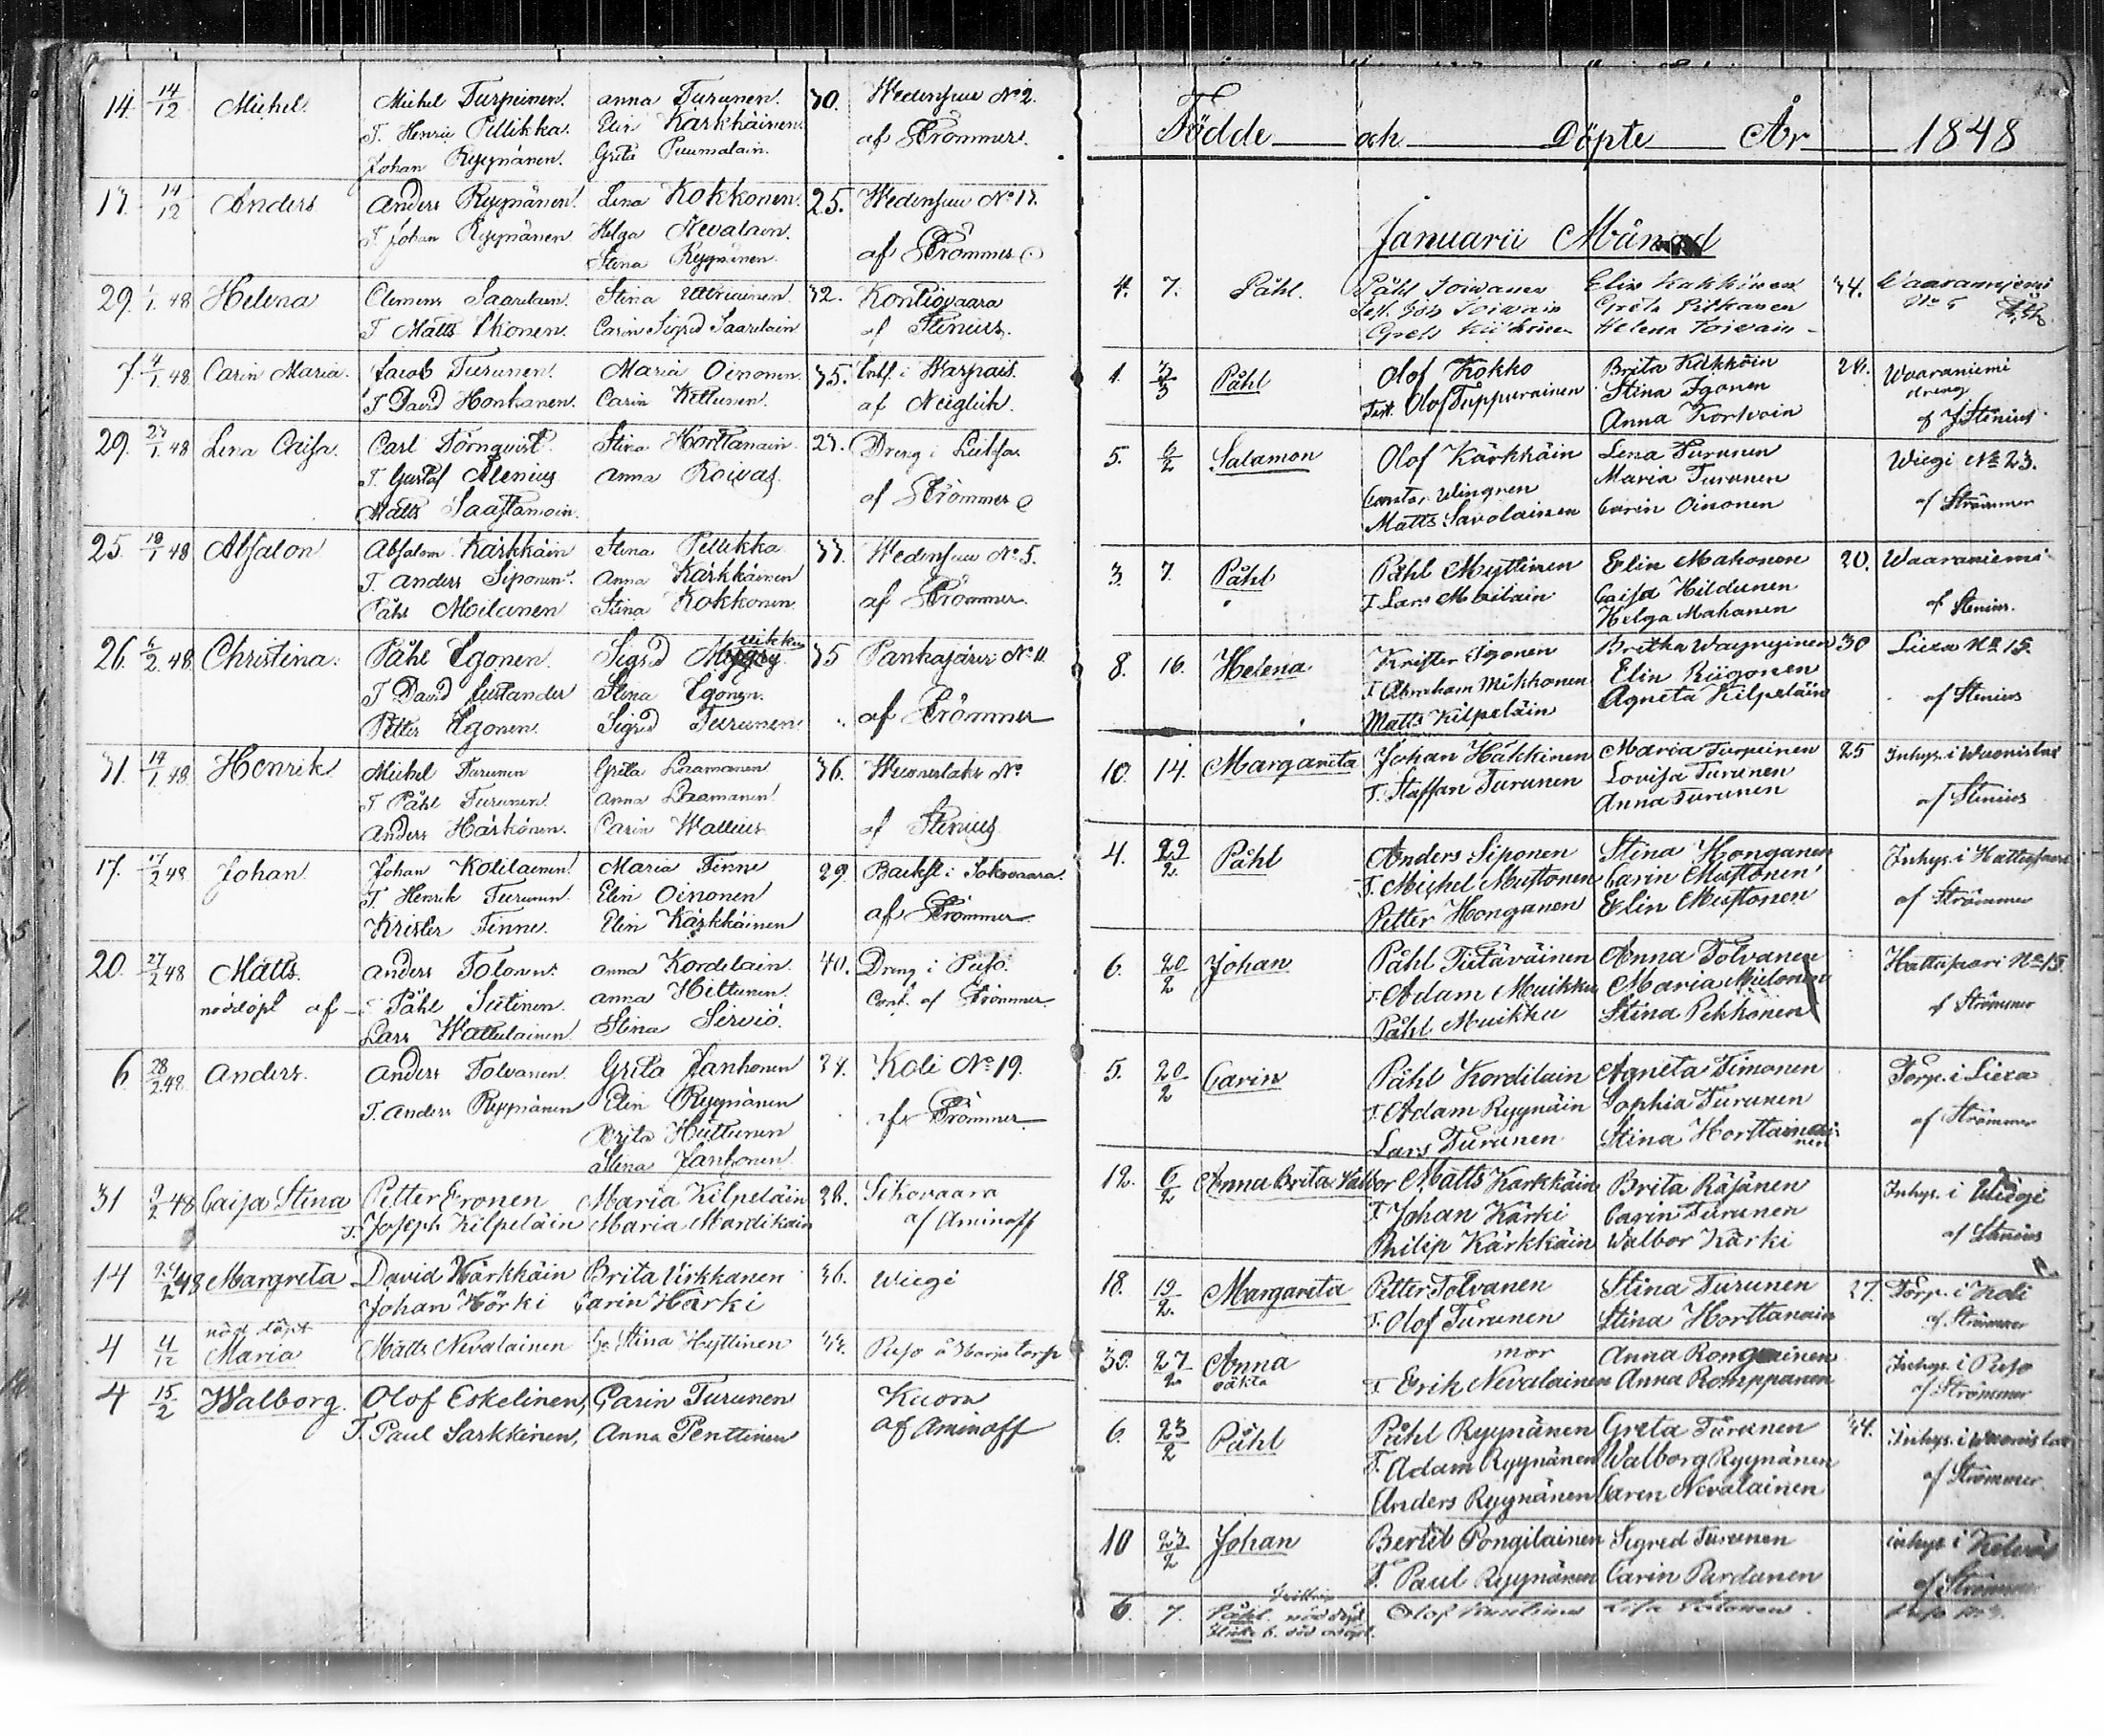 14. 14/12 Michel. Michel Turpeinen. Anna Turunen. 30. Wedensuu No 2.
T. Henric Pellikka. Elin Kärkkäinen. af Strömmer.
Johan Ryynänen. Greta Puumalain.
17. 14/12 Anders Anders Ryynänen. Lena Kokkonen. 25. Wedensuu No 17.
T. Johan Ryynänen. Helga Nevalain. af Strömmer
Stina Ryynänen.
29. 1/1. 48 Helena Clemens Saarelain. Stina 32. Kontiovaara
T Matts Ikonen. Carin Sigrid Saarelain af Stenius.
7. 4/1. 48 Carin Maria. Jacob Turunen. Maria Oinonen. 35. i Warpais.
T David Honkanen. Carin Kettunen. af Neiglick.
29. 23/1. 48 Lena Caisa. Carl Törnqvist. Stina Horttanain. 23. Dreng i
T. Gustaf Alenius Anna Roivas. af Strömmer
Matts Saastamoin.
25. 18/1 48 Absalon Absalom Kärkkäin Stina Pellikka. 33. Wedensuu No 5.
T. Anders Siponen. Anna Kärkkäinen af Strömmer.
Påhl Moilanen Stina Kokkonen.
26. 6/2. 48. Christina. Påhl Egonen. Sigrid Muikku 35 Pankajärvi No 11
T David Stina Egonen.
Petter Egonen. Sigrid Turunen. af Strömmer
31. 14/1. 48. Henrik. Michel Turunen Greta 36. No
T Påhl Turunen. Anna
Anders Härkönen. Carin Wallius. af Stenius
17. 17/2 48 Johan. Johan Kotilainen. Maria Tinne 29. Backst i Sokovaara.
T. Henrik Turunen. Elin Oinonen af Strömmer
Krister Tinne. Elin Kärkkäinen
20. 27/2 48 Matts. Anders Tolonen. Anna Kordelain. 40. Dreng i Puso.
nöddöpt af Påhl Sutinen. Anna Hiltunen. Conf. af Strömmer
Lars Wattulainen. Stina Serviö.
6 28/2. 48. Anders. Anders Tolvanen. Greta Janhonen 34. Koli No 19.
T. Anders Ryynänen Elin Ryynänen af Strömmer
Brita Huttunen
Stina Janhonen.
31 9/2 48 Caisa Stina Petter Eronen Maria Kilpeläin 28. Sikovaara
T. Joseph Kilpeläin Maria Mardikain af Aminoff
14 48 Margreta David Kärkkäin Brita Virkkanen 36. Wiegi
Johan Kärki Carin Kärki
nöd döpt
4 4/12 Maria Matts Nevalainen Stina Hyttinen Puso
4 15/2 Walborg. Olof Eskelinen, Carin Turunen Kuora
T. Paul Sarkkinen, Anna Penttinen af Aminoff
Födde och Döpte År 1848
Januarii Månad
4. 7. Påhl. Påhl Toivanen Elin 34. Waaraniemi
Toivain Greta Pitkänen No 5
Greta Helena Toivain
1. Påhl Olof Kokko Brita Kärkkäin 28. Waaraniemi
Test. Olof Tuppurainen Stina Igonen dreng
Anna Kortvain af J Stenius
5. 6/2 Salamon Olof Kärkkäin Lena Turunen Wiegi No 23.
Cantor Wingren Maria Turunen af Strömmer
Matts Savolainen Carin Oinonen
3. 7. Påhl Påhl Myttinen Elin Mahonen 20. Waaraniemi
T Lars Caisa Hildunen af Stenius.
Helga Mahanen
8. 16. Helena Krister Igonen Britha Wäyryinen 30 Liexa No 15.
T Abraham Mikkonen Elin Riigonen af Stenius
Matts Kilpeläin Agneta Kilpeläin
10. 14. Margareta Johan Häkkinen Maria Turpeinen 25 Inhys. i
T. Staffan Turunen Lovisa Turunen af Stenius
Anna Turunen
4. 29/2 Påhl Anders Siponen Stina Honganen Inhys. i Hattusaari
T. Michel Mustonen Carin Mustonen af Strömmer
Petter Honganen Elin Mustonen
6. 20/2 Johan Påhl Tietäväinen Anna Tolvanen Hattusaari No 15
T Adam Muikku Maria af Strömmer
Påhl Muikku Stina Pekkonen
5. 20/2 Carin Påhl Kordilain Agneta Timonen Torp. i Liexa
T. Adam Ryynäin Sophia Turunen af Strömmer
Lars Turunen Stina
12. 6/2 Anna Brita Valbor Matts Karkkäin Brita Räsänen Inhys. i Wiegi
T Johan Kärki Carin Turunen af Stenius
Philip Kärkkäin Walbor Kärki
18. 19/2. Margareta Petter Tolvanen Stina Turunen 27. Torp. i Koli
T. Olof Turunen Stina Horttanain af Strömmer
35. 27/2 Anna mor Anna Inhys. i Puso
oäkta T Erik Nevalainen Anna Romppanen af Strömmer
6. 23/2 Påhl Påhl Ryynänen Greta Turunen 34. Inhys. i
T. Adam Ryynänen Walborg Ryynänen af Strömmer
Anders Ryynänen Caren Nevalainen
10 23/2 Johan Bertil Pongilainen Sigred Turunen inhys i
T. Paul Ryynänen Carin Pardanen af Strömmer
6. 7. Påhl nöd döpt Olof